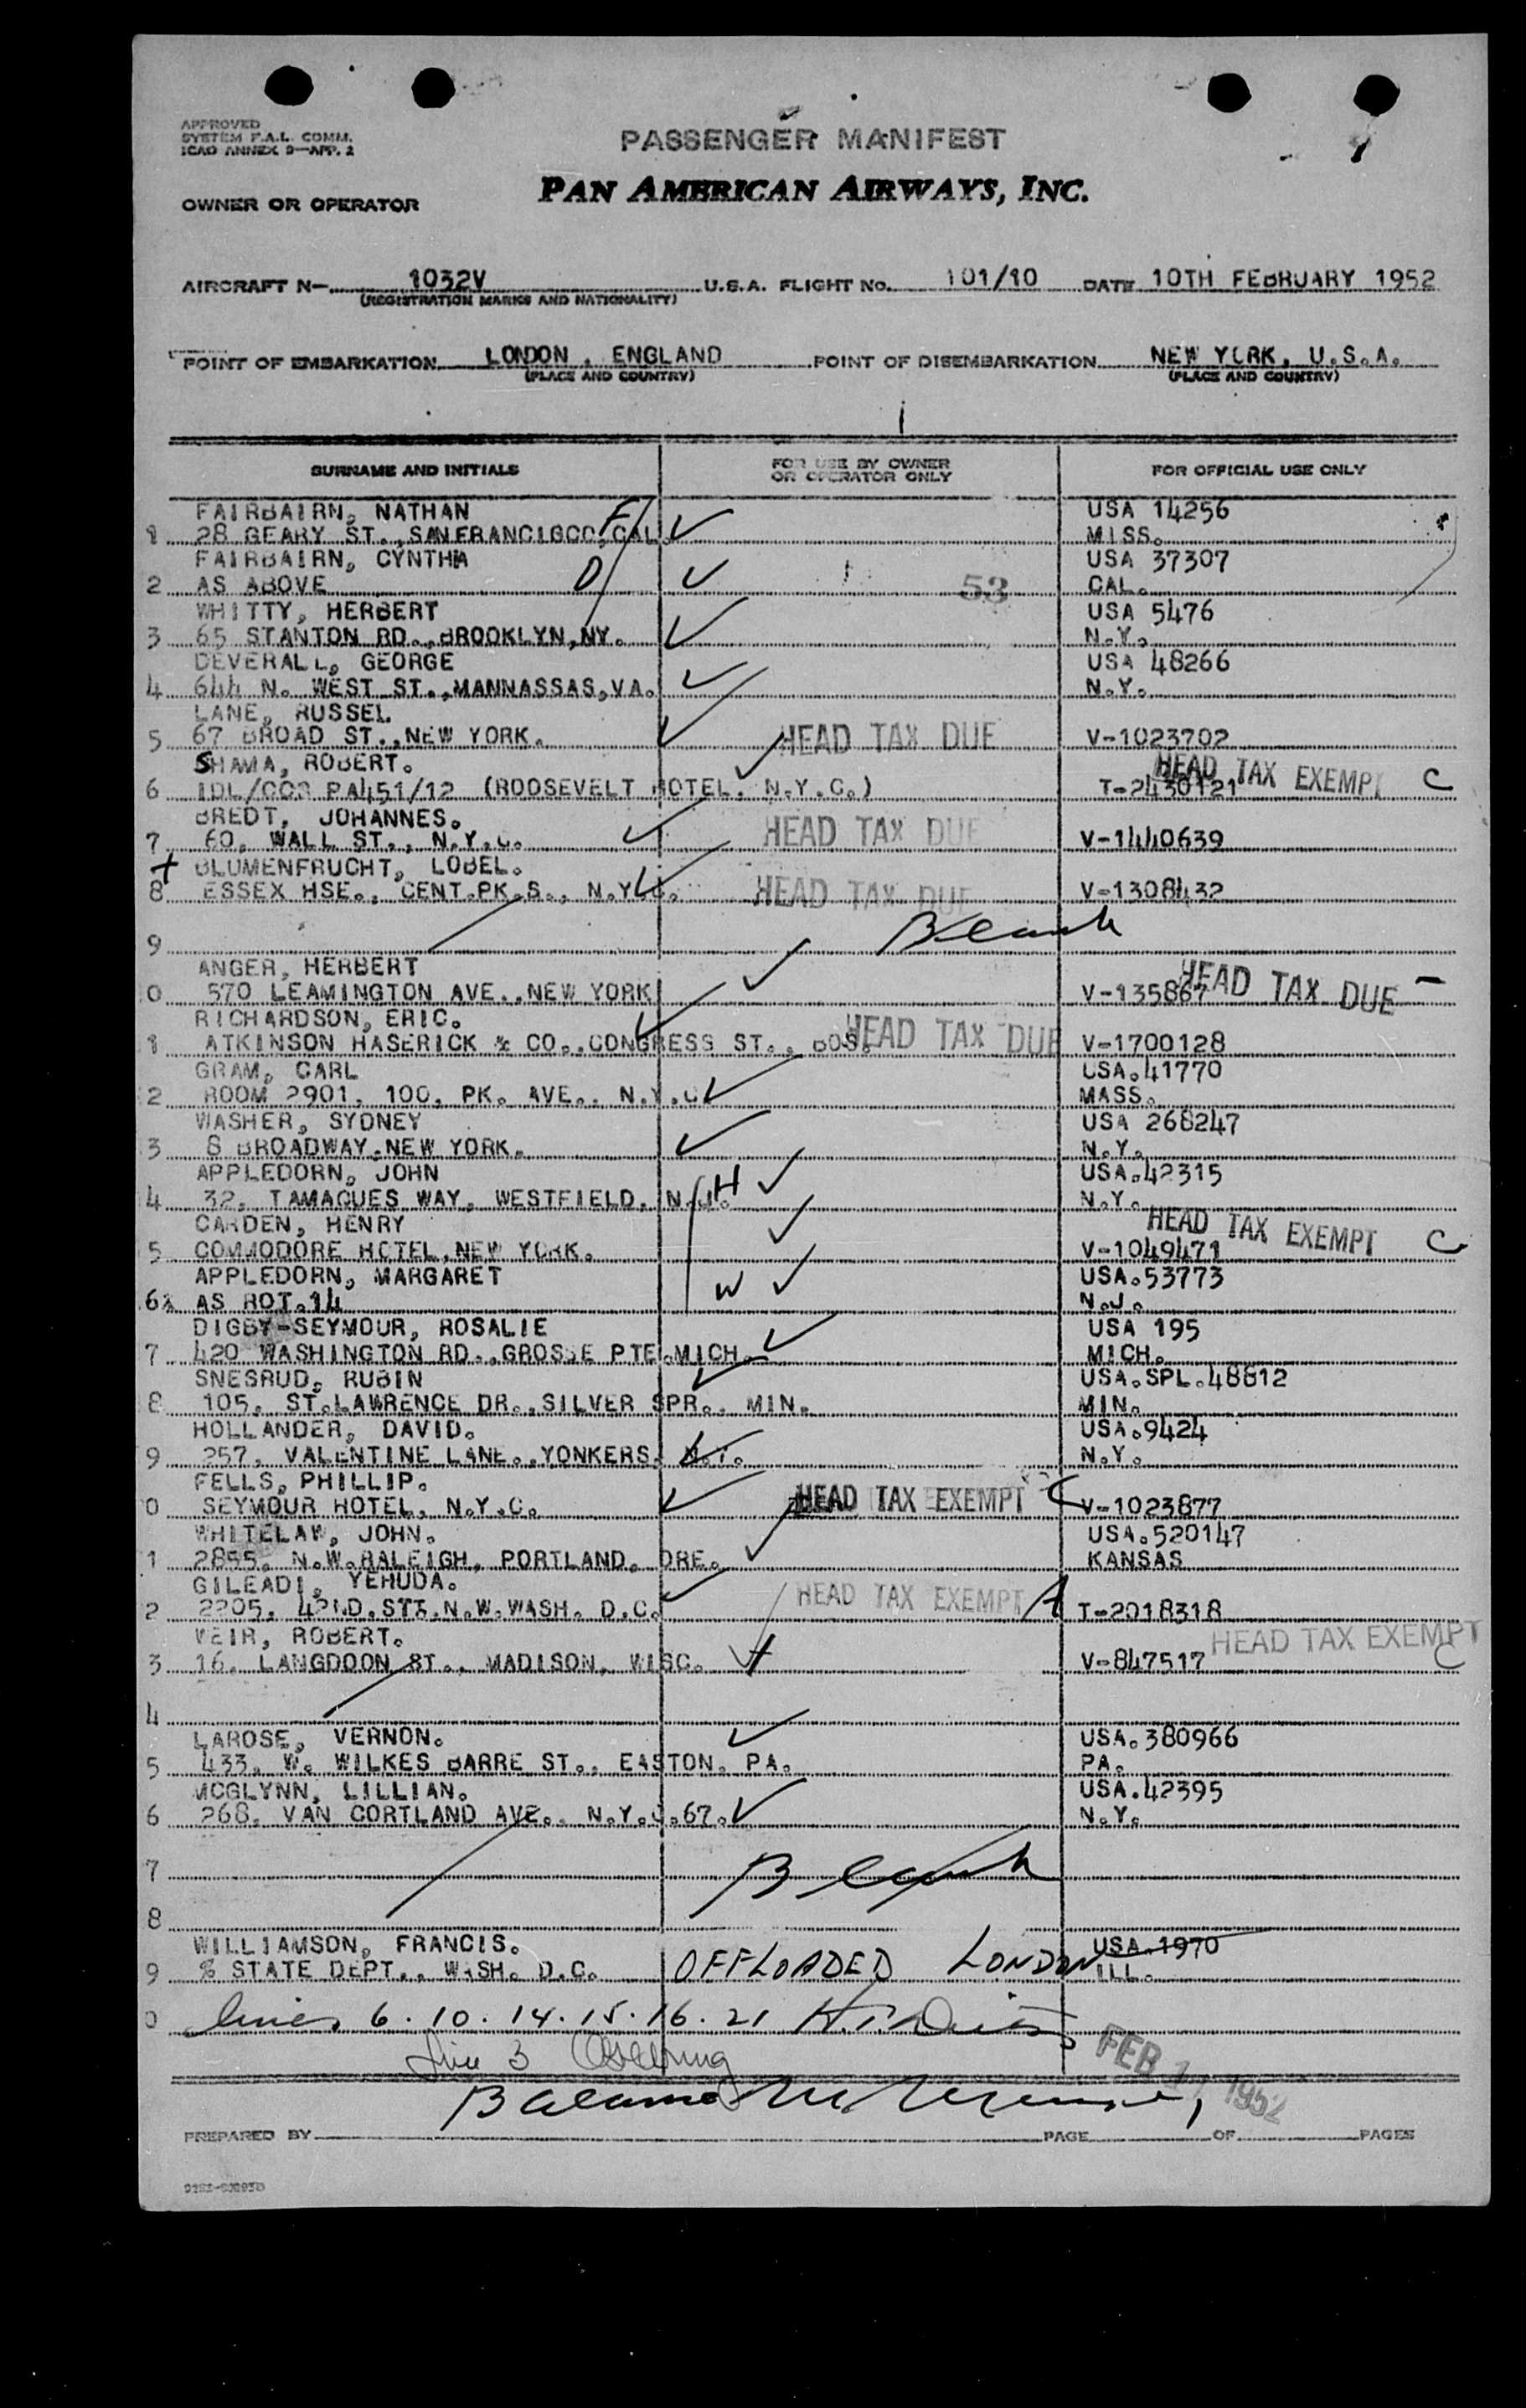 APPROVED
SYSTEM F.A.L. COMM.
ICAO ANNEX 9—APP. 2
PASSENGER MANIFEST
OWNER OR OPERATOR
PAN AMERICAN AIRWAYS, INC.
AIRCRAFT N— 1032V U.S.A. FLIGHT NO. 101/10 DATE 10TH FEBRUARY 1952
(REGISTRATION MARKS AND NATIONALITY)
POINT OF EMBARKATION LONDON, ENGLAND POINT OF DISEMBARKATION NEW YORK, U.S.A.
(PLACE AND COUNTRY) (PLACE AND COUNTRY)
SURNAME AND INITIALS FOR USE BY OWNER OR OPERATOR ONLY FOR OFFICIAL USE ONLY
FAIRBAIRN, NATHAN F USA 14256
1 28 GEARY ST.,SAN FRANCISCO,CAL. MISS.
FAIRBAIRN, CYNTHIA USA 37307
2 AS ABOVE D 53 CAL.
WHITTY, HERBERT USA 5476
3 65 STANTON RD.,BROOKLYN,NY. N.Y.
DEVERALL, GEORGE USA 48266
4 644 N. WEST ST.,MANNASSAS,VA. N.Y.
LANE, RUSSEL
5 67 BROAD ST.,NEW YORK. HEAD TAX DUE V-1023702
SHAMA, ROBERT. HEAD TAX EXEMPT C
6 IDL/CCS PA451/12 (ROOSEVELT HOTEL, N.Y.C.) T-2430121
BREDT, JOHANNES.
7 60, WALL ST., N.Y.C. HEAD TAX DUE V-1440639
BLUMENFRUCHT, LOBEL.
8 ESSEX HSE., CENT.PK.S., N.Y.C. HEAD TAX DUE V-1308432
9 Blank
ANGER, HERBERT
0 570 LEAMINGTON AVE.,NEW YORK V-135867 HEAD TAX DUE —
RICHARDSON, ERIC.
1 ATKINSON HASERICK & CO.,CONGRESS ST., BOS. HEAD TAX DUE V-1700128
GRAM, CARL USA.41770
2 ROOM 2901, 100, PK. AVE., N.Y.C. MASS.
WASHER, SYDNEY USA 268247
3 8 BROADWAY,NEW YORK. N.Y.
APPLEDORN, JOHN USA.42315
4 32, TAMAQUES WAY, WESTFIELD, N.J. H N.Y.
CARDEN, HENRY HEAD TAX EXEMPT C
5 COMMODORE HOTEL,NEW YORK. V-1049471
APPLEDORN, MARGARET USA.53773
6 AS ROT.14 W N.J.
DIGBY-SEYMOUR, ROSALIE USA 195
7 420 WASHINGTON RD.,GROSSE PTE.MICH. MICH.
SNESRUD, RUBIN USA.SPL.48812
8 105, ST.LAWRENCE DR.,SILVER SPR., MIN. MIN.
HOLLANDER, DAVID. USA.9424
9 257, VALENTINE LANE.,YONKERS, N.Y. N.Y.
FELLS, PHILLIP.
0 SEYMOUR HOTEL, N.Y.C. HEAD TAX EXEMPT C V-1023877
WHITELAW, JOHN. USA.520147
1 2855, N.W.RALEIGH, PORTLAND, ORE. KANSAS
GILEADI, YEHUDA.
2 2205, 42ND.ST.N.W.WASH. D.C. HEAD TAX EXEMPT A T-2018318
WEIR, ROBERT. HEAD TAX EXEMPT C
3 16, LANGDOON ST., MADISON, WISC. V-847517
4
LAROSE, VERNON. USA.380966
5 433, W. WILKES BARRE ST., EASTON, PA. PA.
MCGLYNN, LILLIAN. USA.42395
6 268, VAN CORTLAND AVE., N.Y.C.67. N.Y.
7 Blank
8
WILLIAMSON, FRANCIS. USA.1970
9 % STATE DEPT., WASH. D.C. OFFLOADED LONDON ILL.
0 lines 6. 10. 14. 15. 16. 21
line 3
FEB 1 1952
PREPARED BY PAGE OF PAGES